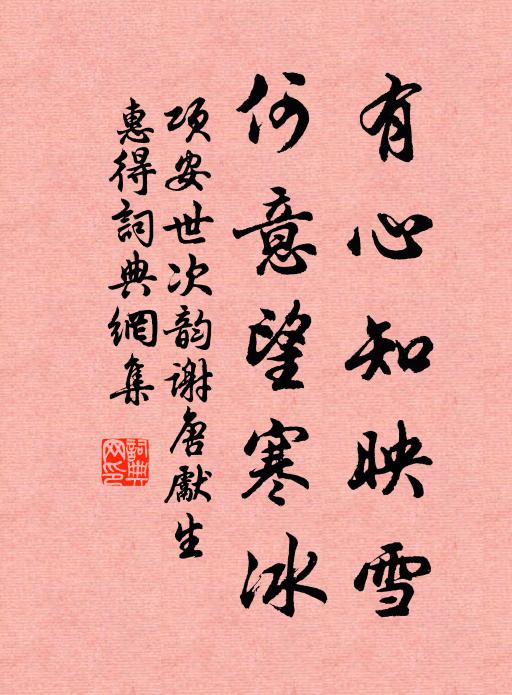 有心知映雪
何意望寒冰
項安世次韵謝唐獻生
惠得詞典網集
詞典网印